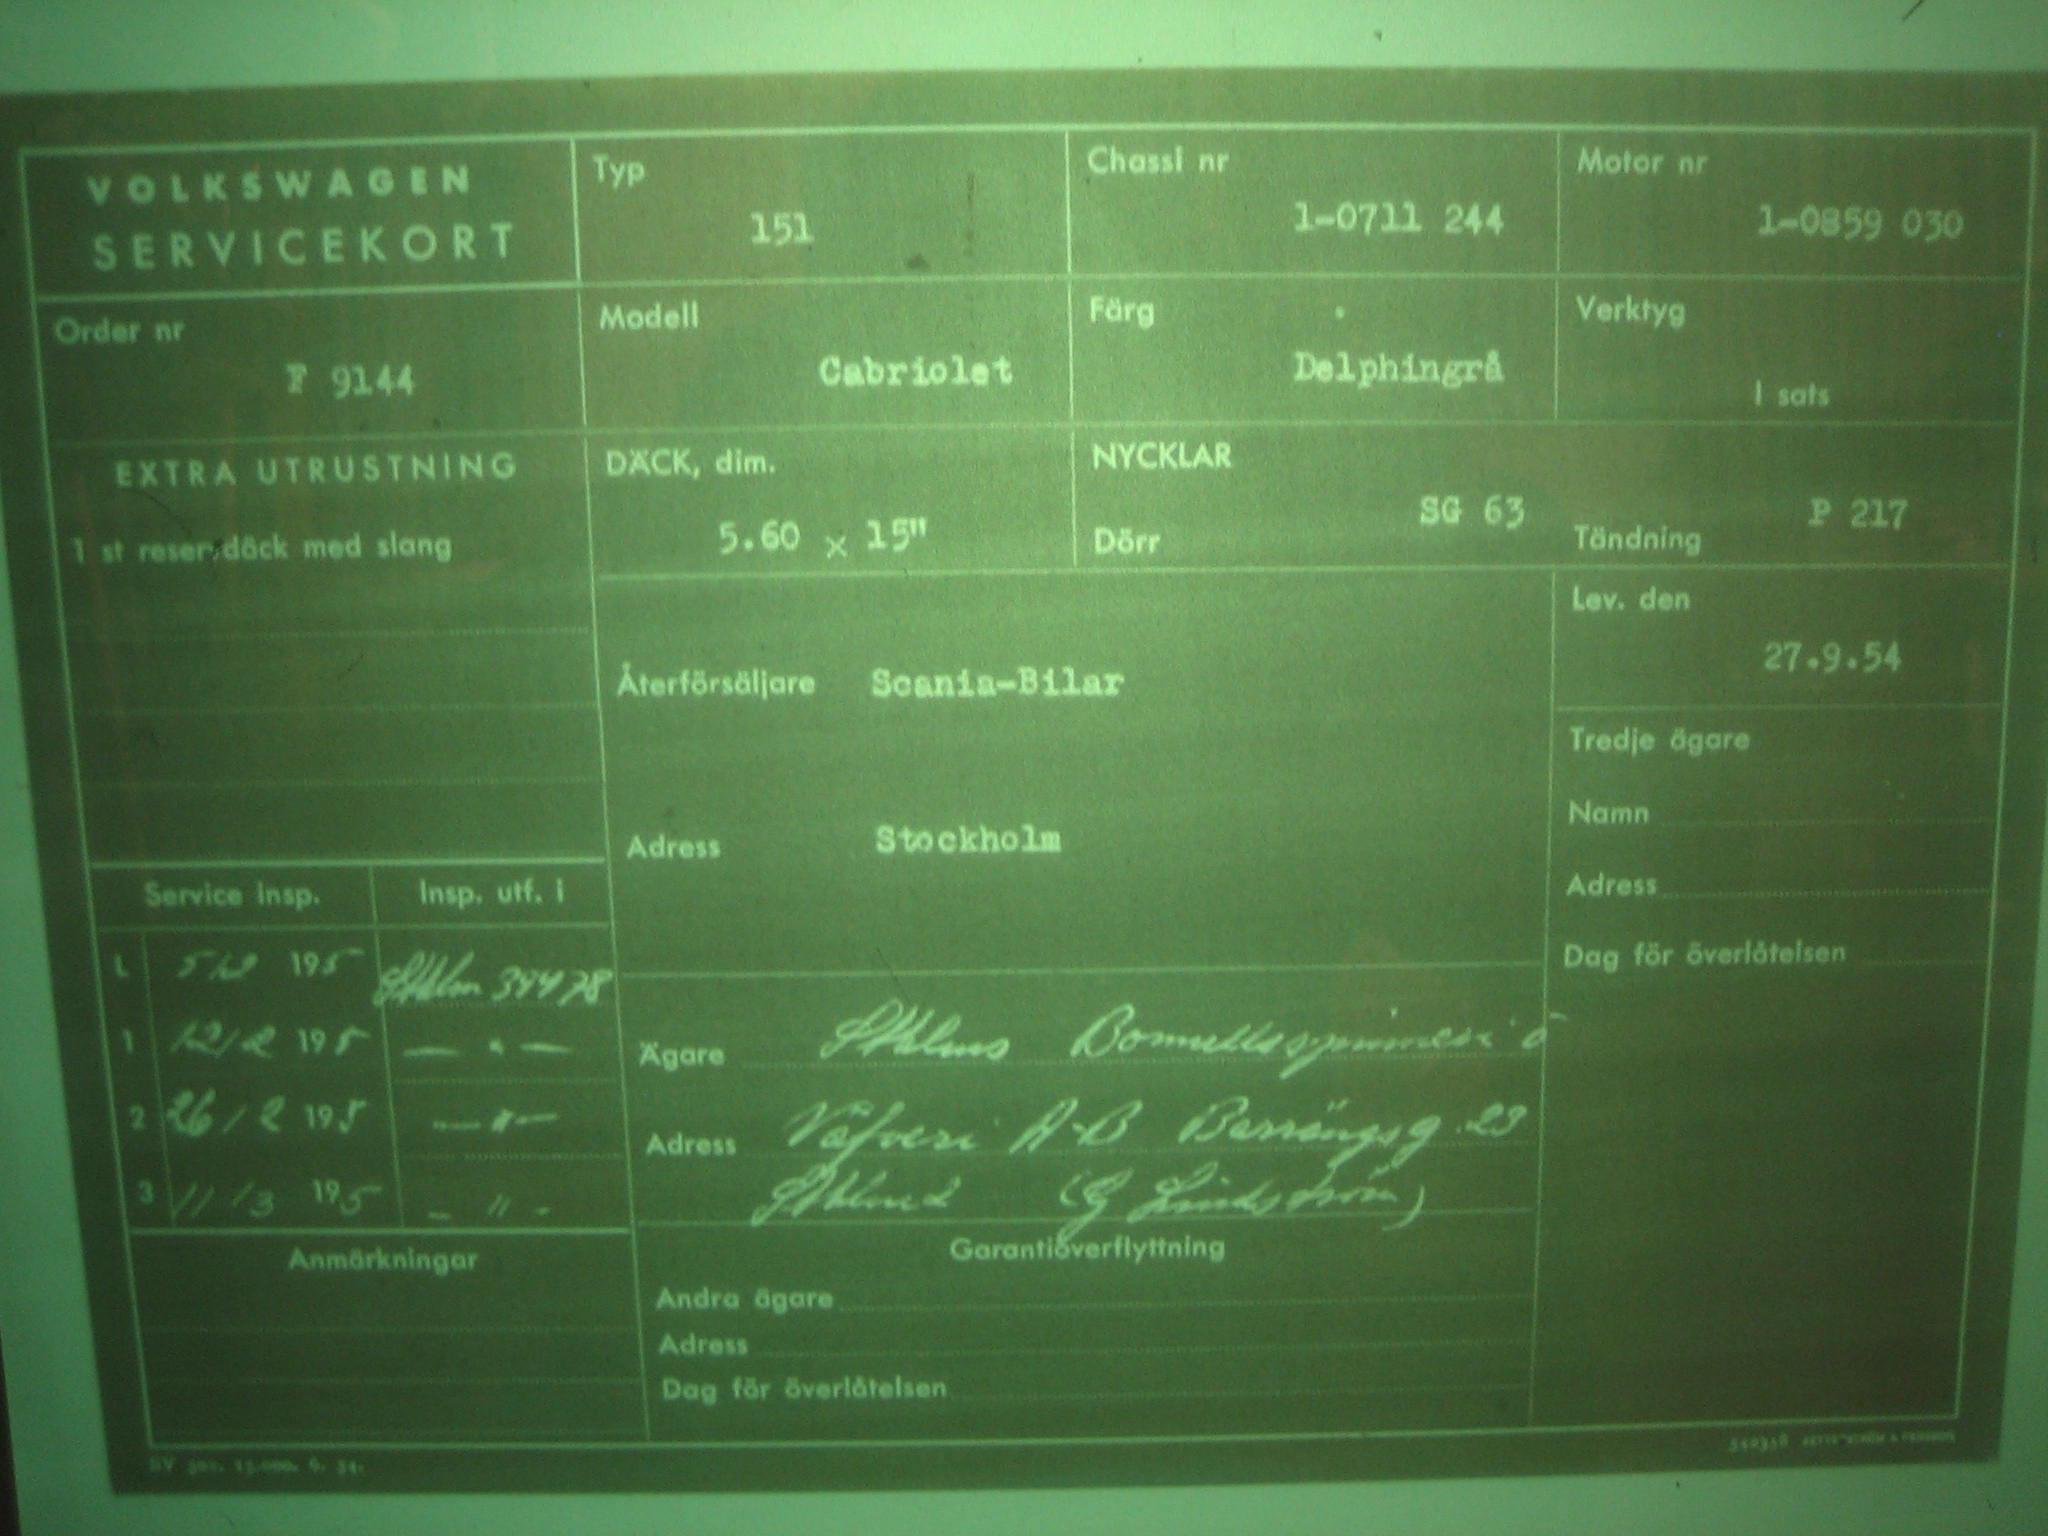 VOLKSWAGEN
SERVICEKORT
Typ
151
Chassi nr
1-0711 244
Motor nr
1-0859 030
Order nr
F 9144
Modell
Cabriolet
Färg
Delphingrå
Verktyg
1 sats
EXTRA UTRUSTNING
1 st reservdäck med slang
DÄCK, dim.
5.60 x 15"
NYCKLAR
Dörr
SG 63
Tändning
P 217
Lev. den
27.9.54
Återförsäljare Scania-Bilar
Adress Stockholm
Tredje ägare
Namn
Adress
Dag för överlåtelsen
Service insp.
Insp. utf. i
L 195 Sthlm 34478
1 12/2 195 5 — " —
2 26/2 195 5 — " —
3 11/3 195 - " -
Ägare Sthlms Bomullsspinneri &
Adress Väfveri A-B Barnängsg. 23
Sthlm (G Lindström)
Anmärkningar
Garantiöverflyttning
Andra ägare
Adress
Dag för överlåtelsen